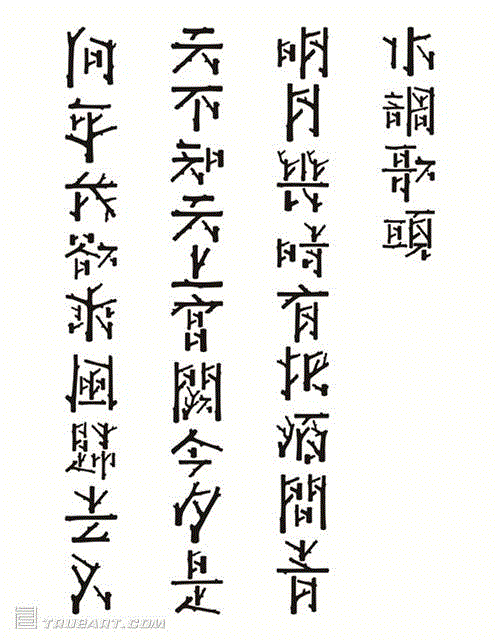 水調歌頭
明月幾時有把酒問青
天不知天上宮闕今夕是
何年我欲乘風歸去又
TRUEART.COM